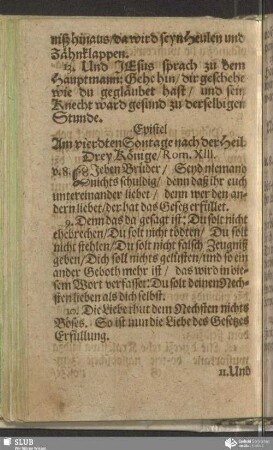 niß hinaus/ da wird seyn Heulen und
Zähnklappen.
13. Und JEsus sprach zu dem
Hauptmann: Gehe hin/ dir geschehe
wie du gegläubet hast/ und sein
Knecht ward gesund zu derselbigen
Stunde.
Epistel
Am vierdten Sontage nach der Heil.
Drey Könige/ Rom. XIII.
v. 8. Lieben Brüder/ Seyd niemand
nichts schuldig/ denn daß ihr euch
untereinander liebet/ denn wer den an-
dern liebet/ der hat das Gesetz erfüllet.
9. Denn das da gesagt ist: Du solt nicht
ehebrechen/ Du solt nicht tödten/ Du solt
nicht stehlen/ Du solt nicht falsch Zeugniß
geben/ Dich soll nichts gelüsten/ und so ein
ander Geboth mehr ist/ das wird in die-
sem Wort verfasset: Du solt deinen Nech-
sten lieben als dich selbst.
10. Die Liebe thut dem Nechsten nichts
Böses. So ist nun die Liebe des Gesetzes
Erfüllung.
11. Und
SLUB